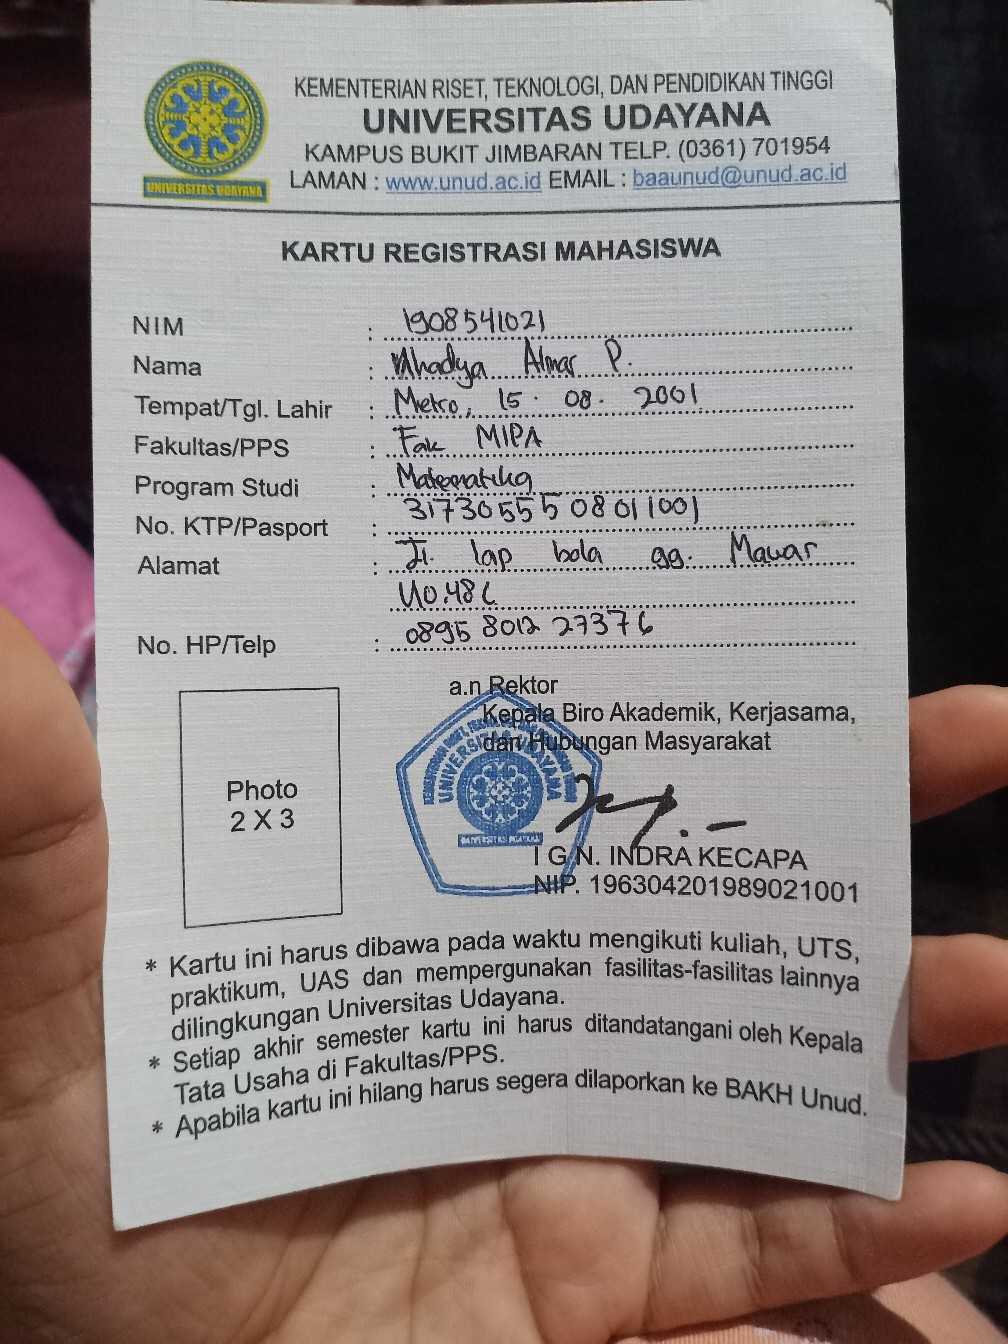 KEMENTERIAN RISET, TEKNOLOGI, DAN PENDIDIKAN TINGGI
UNIVERSITAS UDAYANA
KAMPUS BUKIT JIMBARAN TELP. (0361) 701954
LAMAN : www.unud.ac.id EMAIL : baaunud@unud.ac.id
UNIVERSITAS UDAYANA
KARTU REGISTRASI MAHASISWA
NIM : 1908541021
Nama : Almar P.
Tempat/Tgl. Lahir : Metro, 15. 08. 2001
Fakultas/PPS : Fak MIPA
Program Studi : Matematika
No. KTP/Pasport : 3173055508011001
Alamat : Jl. lap bola gg. Mawar
No.48C
No. HP/Telp : 0895 8012 27376
a.n Rektor
Kepala Biro Akademik, Kerjasama,
dan Hubungan Masyarakat
UNIVERSITAS UDAYANA
UNIVERSITAS UDAYANA
Photo
2 X 3
I G N. INDRA KECAPA
NIP. 196304201989021001
* Kartu ini harus dibawa pada waktu mengikuti kuliah, UTS,
praktikum, UAS dan mempergunakan fasilitas-fasilitas lainnya
dilingkungan Universitas Udayana.
* Setiap akhir semester kartu ini harus ditandatangani oleh Kepala
Tata Usaha di Fakultas/PPS.
* Apabila kartu ini hilang harus segera dilaporkan ke BAKH Unud.